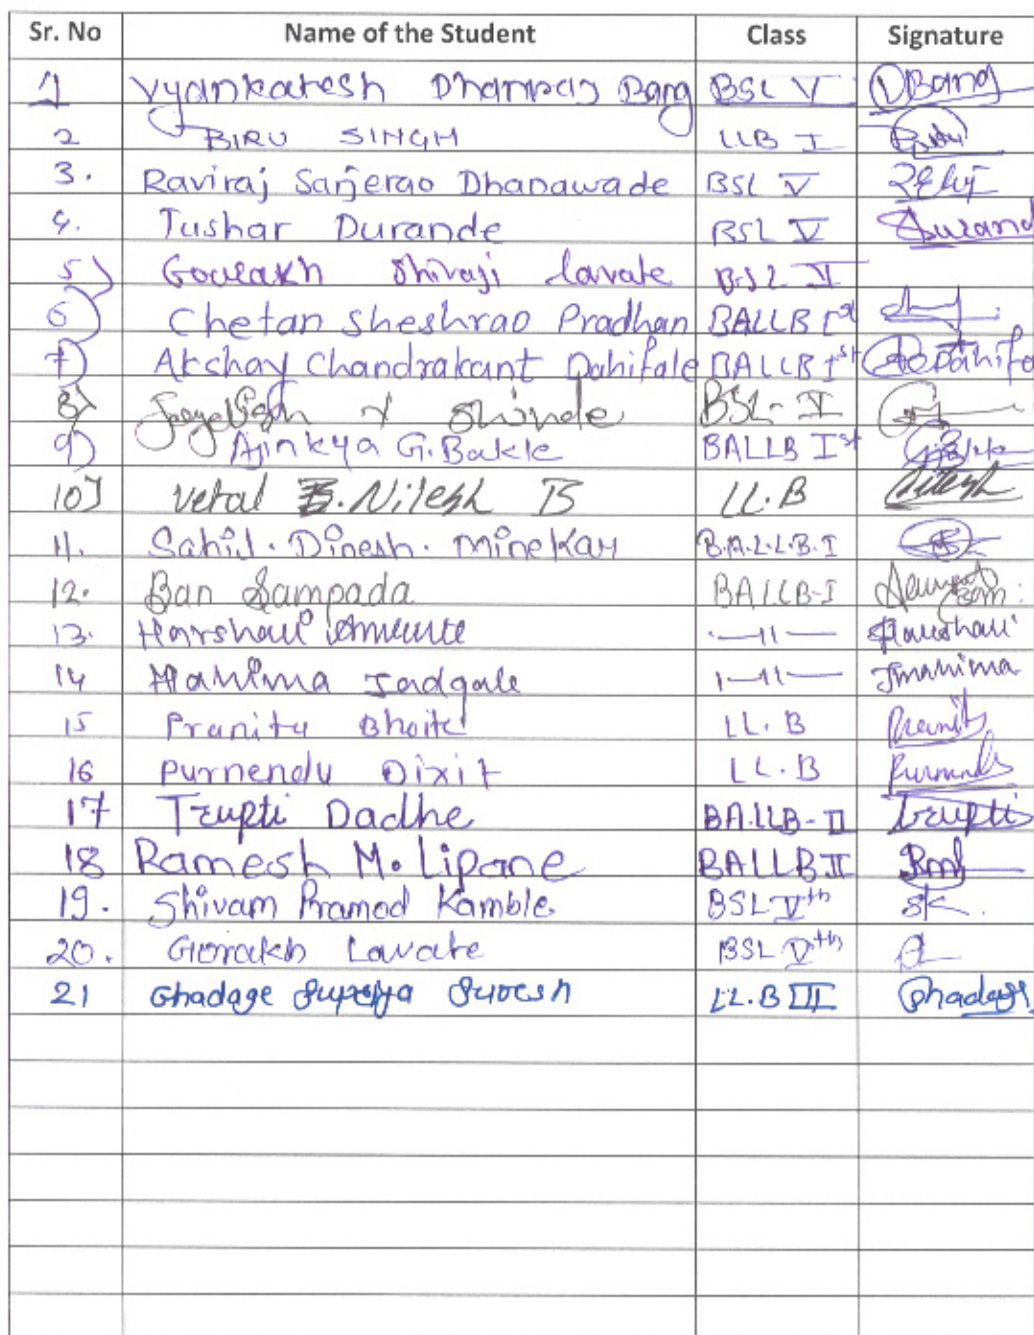 Sr. No Name of the Student Class Signature
1 Vyankatesh Dhanraj Bang BSL V DBang
2 BIRU SINGH LLB I
3. Raviraj Sarjerao Dhanawade BSL V
4. Tushar Durande BSL V Durand
5) Gorakh Shivaji Lavate B.S.L V
6) Chetan Sheshrao Pradhan BALLB Ist
7) Akshay Chandrakant Dahifale BALLB Ist
8) Shinde BSL - V
9) Ajinkya G. Bakle BALLB Ist
10) Vetal B. Nilesh B LL.B Nilesh
11. Sahil. Dinesh. Minekar B.A.L.L.B. I
12. Ban Sampada BALLB-I
13. Harshali -11- Harshali
14 Mahima Jadgale -11- Jmahima
15 Pranita Bhoite LL.B Pranita
16 Purnendu Dixit LL.B
17 Trupti Dadhe BA.LLB-II Trupti
18 Ramesh M. Lipane BALLB II
19. Shivam Pramod Kamble BSL Vth SK.
20. Gorakh Lavate BSL Vth
21 Ghadage Supriya Suresh LL.B III Ghadage